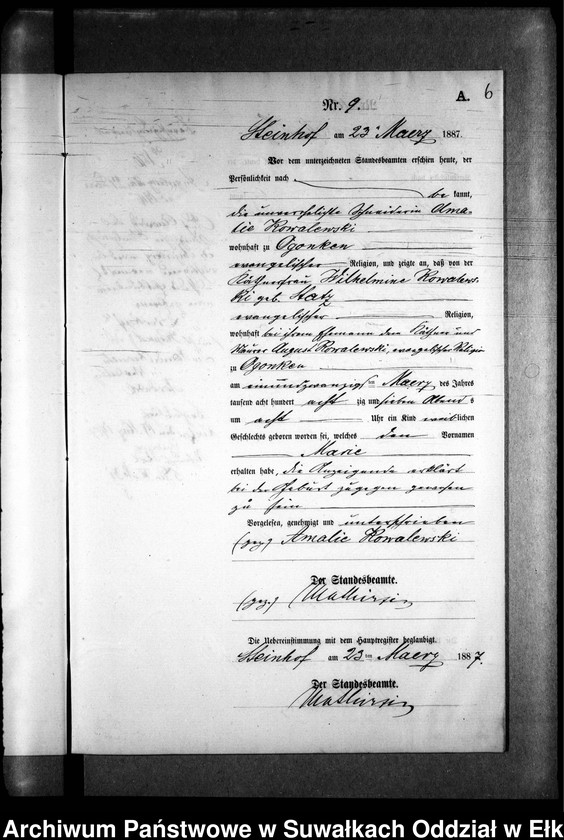 6
A.
Nr. 9.
Steinhof am 23 ten Maerz 1887.
Vor dem unterzeichneten Standesbeamten erschien heute, der
Persönlichkeit nach
be kannt,
die unverehelichte Schneiderin Ama-
lie Kowalewski
wohnhaft zu Ogonken
evangelischer Religion, und zeigte an, daß von der
Käthnerfrau Wilhelmine Kowalews-
ki geb. Statz
evangelischer Religion,
wohnhaft bei ihrem Ehemann dem Käthner und
Maurer August Kowalewski, evangelischer Religion
zu Ogonken
am einundzwanzig ten Maerz des Jahres
tausend acht hundert acht zig und sieben Abend s
um acht Uhr ein Kind weib lichen
Geschlechts geboren worden sei, welches den Vornamen
Marie
erhalten habe, die Anzeigende erklärt
bei der Geburt zugegen gewesen
zu sein
Vorgelesen, genehmigt und unterschrieben
(gez.) Amalie Kowalewski
Der Standesbeamte.
(gez.)
Die Uebereinstimmung mit dem Hauptregister beglaubigt.
Steinhof am 23 ten Maerz 188 7.
Der Standesbeamte.
Archiwum Państwowe w Suwałkach Oddział w Ełk